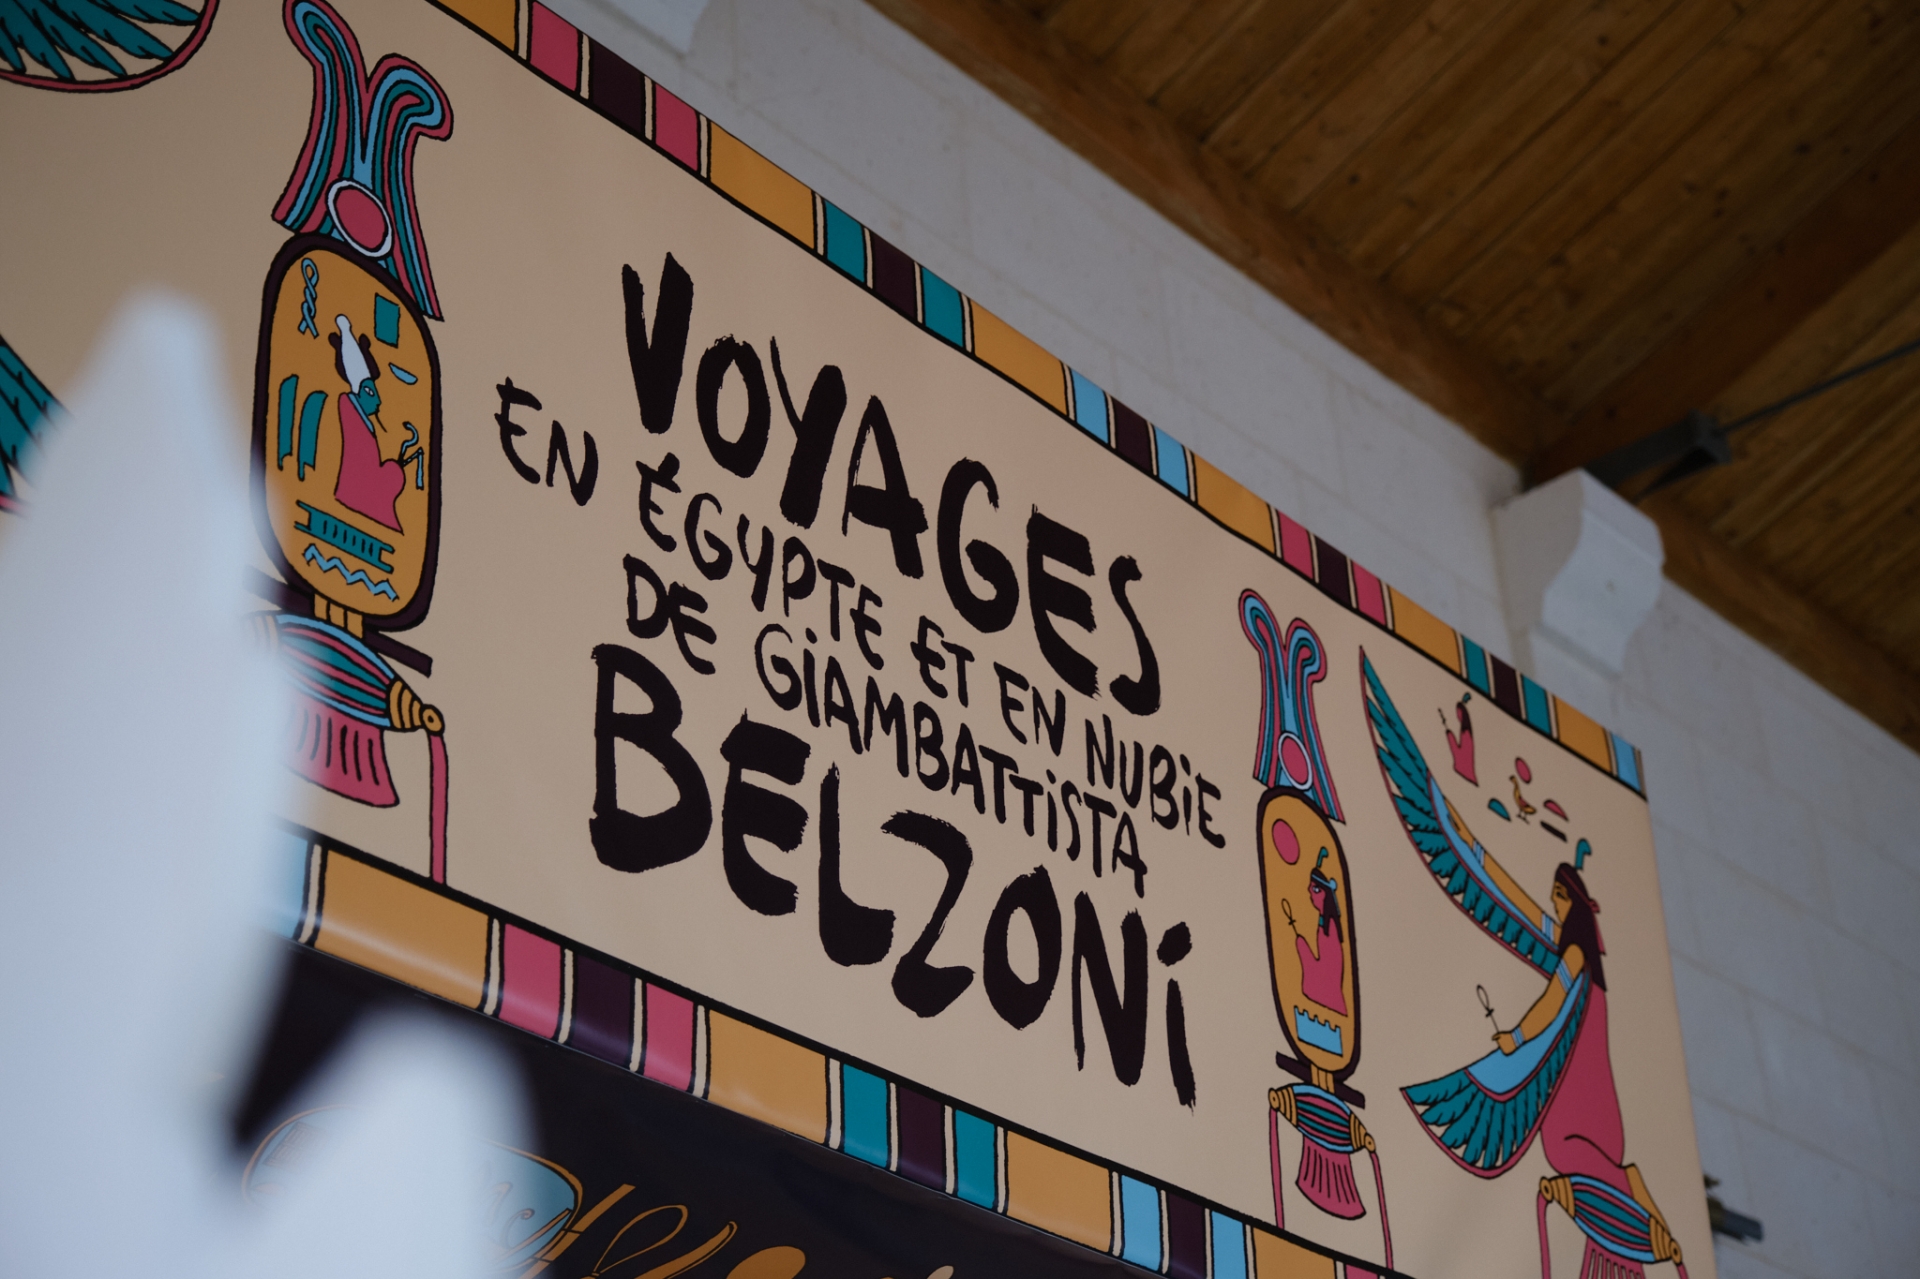 VOYAGES
EN ÉGYPTE ET EN NUBIE
DE GIAMBATTISTA
BELZONI